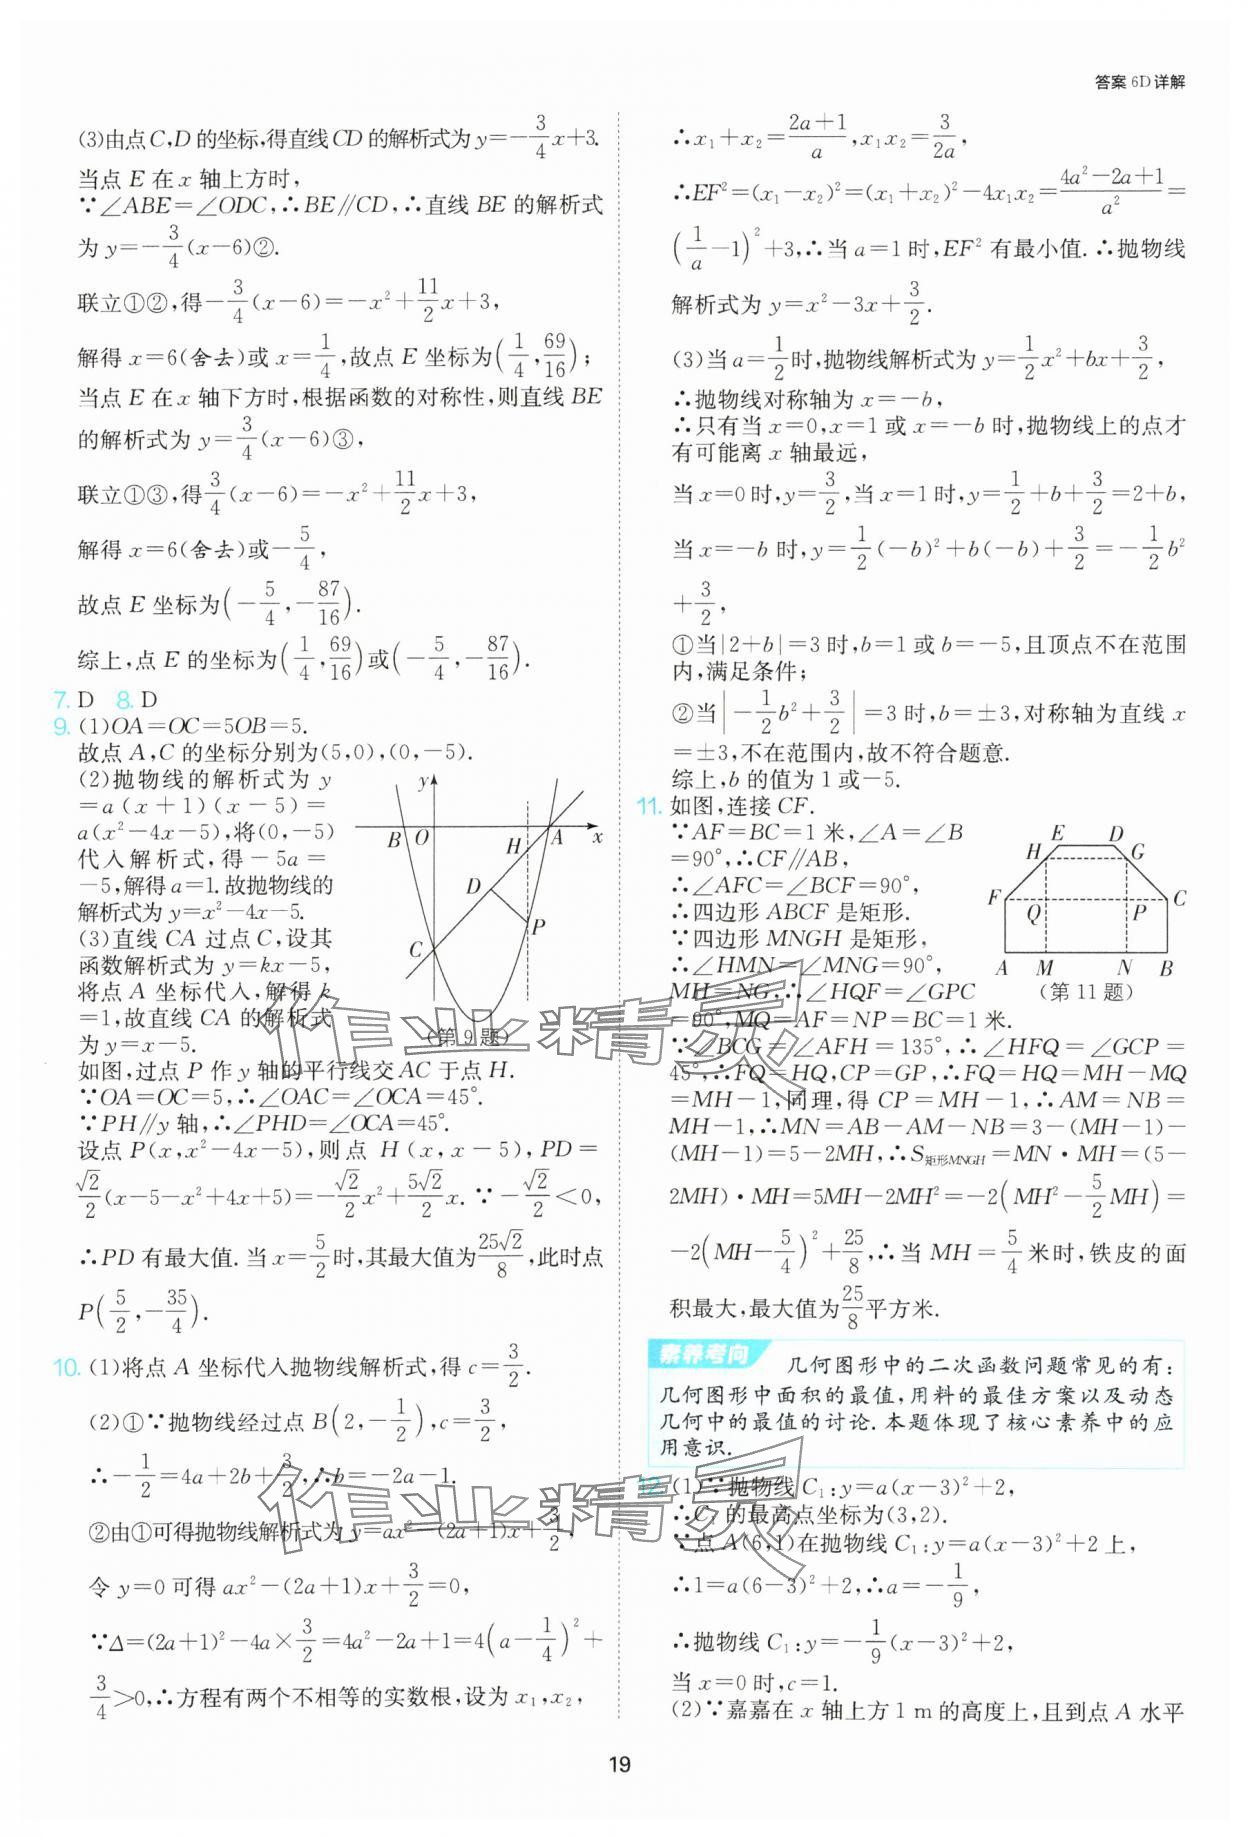 答案 6D详解
(3)由点C,D的坐标,得直线CD的解析式为y=-3/4x+3.
当点E在x轴上方时,
∵∠ABE=∠ODC,∴BE∥CD,∴直线BE的解析式
为y=-3/4(x-6)②.
联立①②,得-3/4(x-6)=-x²+11/2x+3,
解得x=6(舍去)或x=1/4,故点E坐标为(1/4,69/16);
当点E在x轴下方时,根据函数的对称性,则直线BE
的解析式为y=3/4(x-6)③,
联立①③,得3/4(x-6)=-x²+11/2x+3,
解得x=6(舍去)或-5/4,
故点E坐标为(-5/4,-87/16).
综上,点E的坐标为(1/4,69/16)或(-5/4,-87/16).
7. D 8. D
9. (1)OA=OC=5OB=5.
故点A,C的坐标分别为(5,0),(0,-5).
(2)抛物线的解析式为y
=a(x+1)(x-5)=
a(x²-4x-5),将(0,-5)
代入解析式,得-5a=
-5,解得a=1.故抛物线的
解析式为y=x²-4x-5.
(3)直线CA过点C,设其
函数解析式为y=kx-5,
将点A坐标代入,解得k
=1,故直线CA的解析式
为y=x-5.
y
B O H A x
D
P
C
(第9题)
如图,过点P作y轴的平行线交AC于点H.
∵OA=OC=5,∴∠OAC=∠OCA=45°.
∵PH∥y轴,∴∠PHD=∠OCA=45°.
设点P(x,x²-4x-5),则点H(x,x-5),PD=
√2/2(x-5-x²+4x+5)=-√2/2x²+5√2/2x.∵-√2/2<0,
∴PD有最大值.当x=5/2时,其最大值为25√2/8,此时点
P(5/2,-35/4).
10. (1)将点A坐标代入抛物线解析式,得c=3/2.
(2)①∵抛物线经过点B(2,-1/2),c=3/2,
∴-1/2=4a+2b+3/2,∴b=-2a-1.
②由①可得抛物线解析式为y=ax²-(2a+1)x+3/2,
令y=0可得ax²-(2a+1)x+3/2=0,
∵Δ=(2a+1)²-4a×3/2=4a²-2a+1=4(a-1/4)²+
3/4>0,∴方程有两个不相等的实数根,设为x₁,x₂,
∴x₁+x₂=2a+1/a,x₁x₂=3/2a,
∴EF²=(x₁-x₂)²=(x₁+x₂)²-4x₁x₂=4a²-2a+1/a²=
(1/a-1)²+3,∴当a=1时,EF²有最小值.∴抛物线
解析式为y=x²-3x+3/2.
(3)当a=1/2时,抛物线解析式为y=1/2x²+bx+3/2,
∴抛物线对称轴为x=-b,
∴只有当x=0,x=1或x=-b时,抛物线上的点才
有可能离x轴最远,
当x=0时,y=3/2,当x=1时,y=1/2+b+3/2=2+b,
当x=-b时,y=1/2(-b)²+b(-b)+3/2=-1/2b²
+3/2,
①当|2+b|=3时,b=1或b=-5,且顶点不在范围
内,满足条件;
②当|-1/2b²+3/2|=3时,b=±3,对称轴为直线x
=±3,不在范围内,故不符合题意.
综上,b的值为1或-5.
11. 如图,连接CF.
∵AF=BC=1米,∠A=∠B
=90°,∴CF∥AB,
∴∠AFC=∠BCF=90°,
∴四边形ABCF是矩形.
∵四边形MNGH是矩形,
∴∠HMN=∠MNG=90°,
MH=NG,∴∠HQF=∠GPC
=90°,MQ=AF=NP=BC=1米.
E D
H G
F Q P C
A M N B
(第11题)
∵∠BCG=∠AFH=135°,∴∠HFQ=∠GCP=
45°,∴FQ=HQ,CP=GP,∴FQ=HQ=MH-MQ
=MH-1,同理,得CP=MH-1,∴AM=NB=
MH-1,∴MN=AB-AM-NB=3-(MH-1)-
(MH-1)=5-2MH,∴S矩形MNGH=MN·MH=(5-
2MH)·MH=5MH-2MH²=-2(MH²-5/2MH)=
-2(MH-5/4)²+25/8,∴当MH=5/4米时,铁皮的面
积最大,最大值为25/8平方米.
素养考向 几何图形中的二次函数问题常见的有:
几何图形中面积的最值,用料的最佳方案以及动态
几何中的最值的讨论.本题体现了核心素养中的应
用意识.
12. (1)∵抛物线C₁:y=a(x-3)²+2,
∴C₁的最高点坐标为(3,2).
∵点A(6,1)在抛物线C₁:y=a(x-3)²+2上,
∴1=a(6-3)²+2,∴a=-1/9,
∴抛物线C₁:y=-1/9(x-3)²+2,
当x=0时,c=1.
(2)∵嘉嘉在x轴上方1 m的高度上,且到点A水平
作业精灵
作业精灵
19